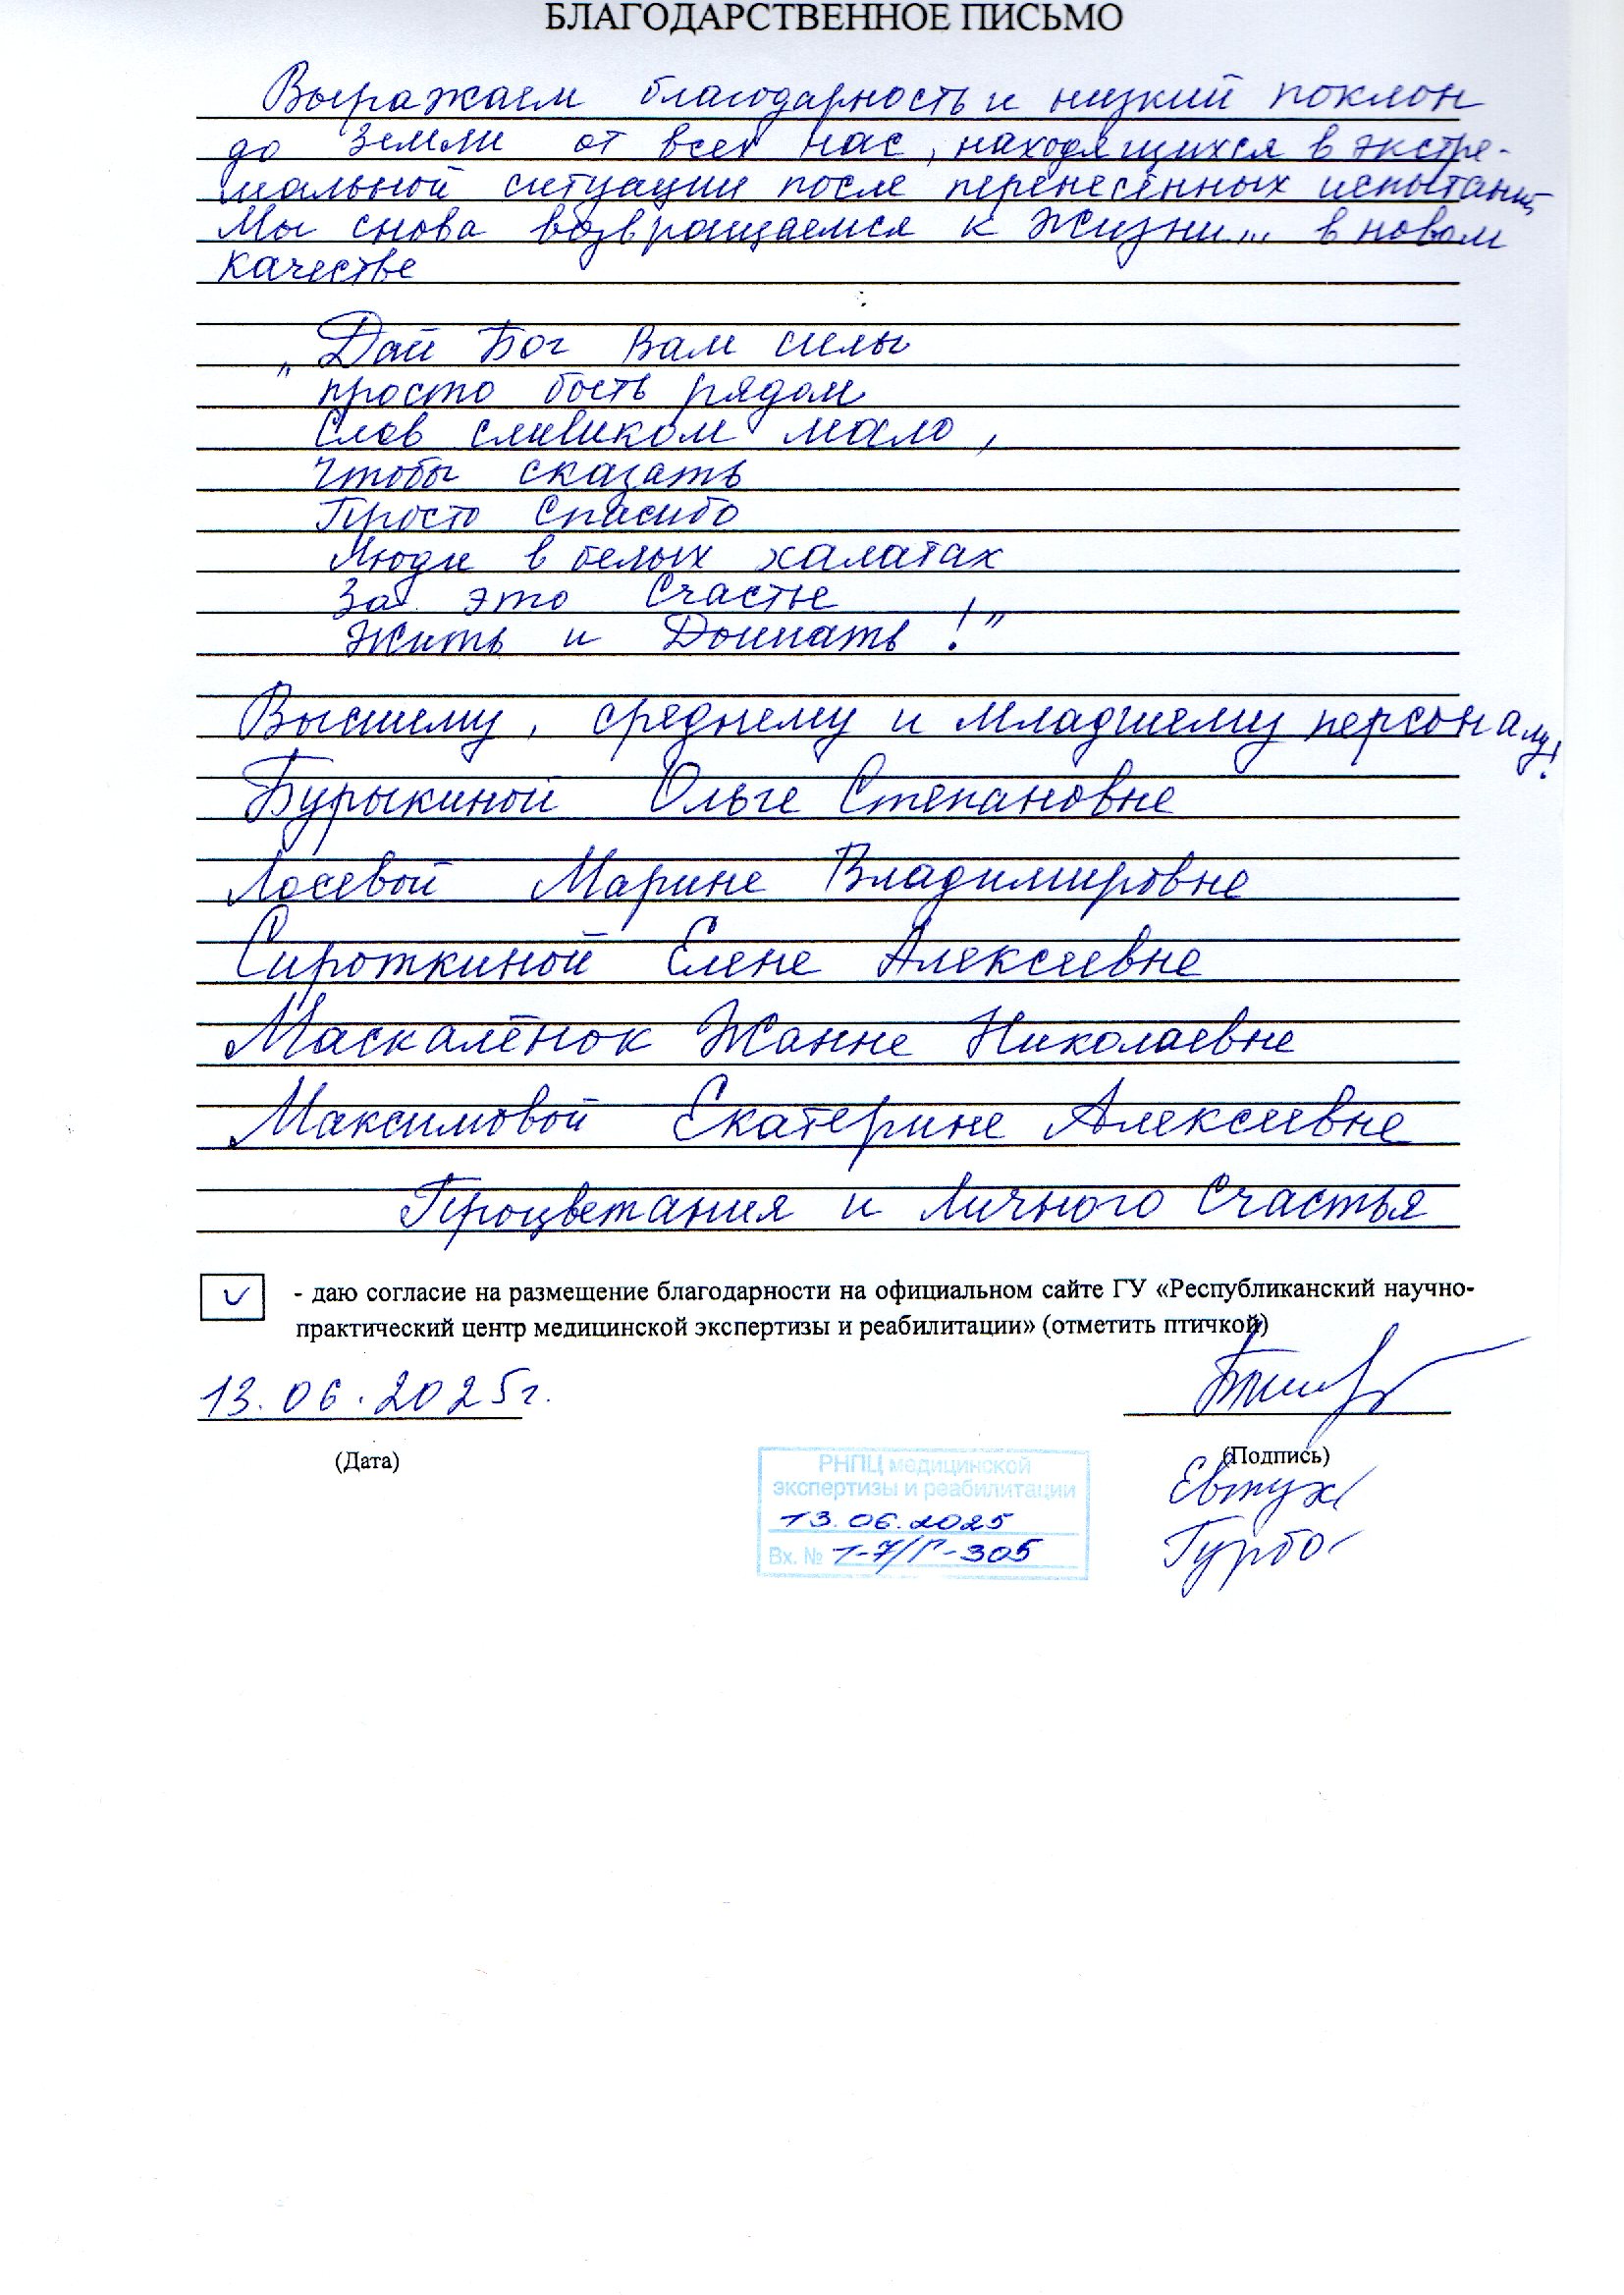 БЛАГОДАРСТВЕННОЕ ПИСЬМО
Выражаем благодарность и низкий поклон
до земли от всех нас, находящихся в экстре-
мальной ситуации после перенесённых испытаний
Мы снова возвращаемся к Жизни... в новом
качестве
„Дай Бог Вам силы
просто быть рядом
Слов слишком мало,
Чтобы сказать
Просто Спасибо
Люди в белых халатах
За это Счастье
Жить и Дышать!”
Высшему, среднему и младшему персоналу!
Бурыкиной Ольге Степановне
Лосевой Марине Владимировне
Сироткиной Елене Алексеевне
Маскалёнок Жанне Николаевне
Максимовой Екатерине Алексеевне
Процветания и Личного Счастья
- даю согласие на размещение благодарности на официальном сайте ГУ «Республиканский научно-
практический центр медицинской экспертизы и реабилитации» (отметить птичкой)
13.06.2025г.
(Дата)
(Подпись)
Евтух
Гурбо
РНПЦ медицинской
экспертизы и реабилитации
13.06.2025
Вх. № 1-7/Г-305